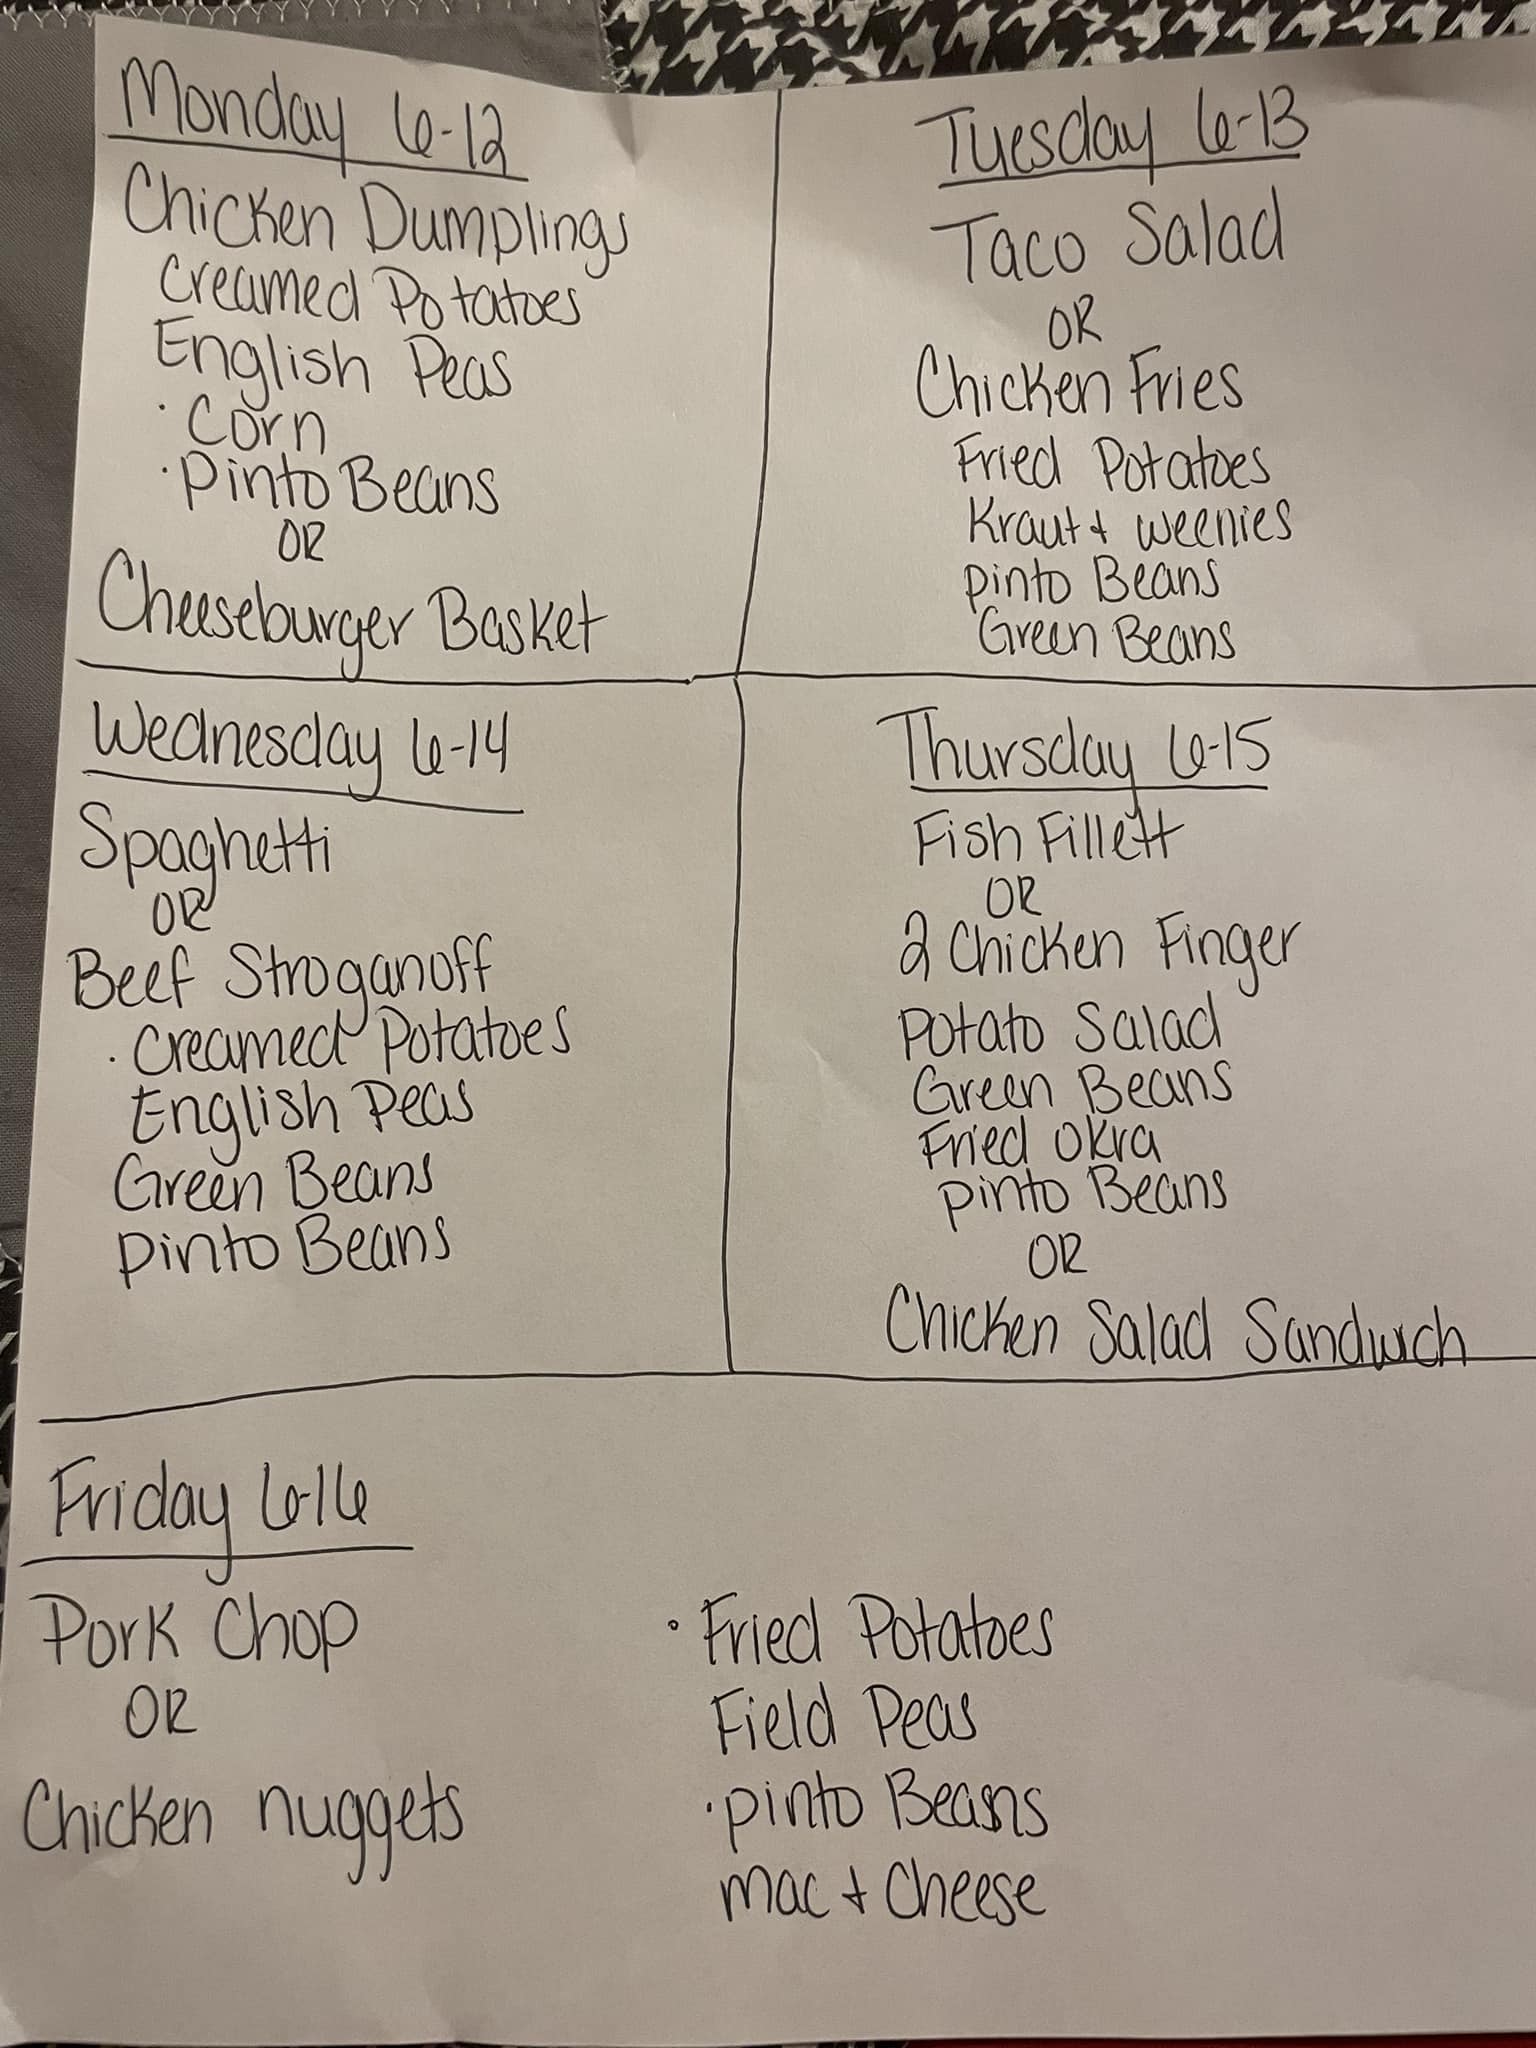 Monday 6-12
Chicken Dumplings
Creamed Potatoes
English Peas
· Corn
· Pinto Beans
OR
Cheeseburger Basket
Tuesday 6-13
Taco Salad
OR
Chicken Fries
Fried Potatoes
Kraut + weenies
pinto Beans
Green Beans
Wednesday 6-14
Spaghetti
OR
Beef Stroganoff
· Creamed Potatoes
English Peas
Green Beans
pinto Beans
Thursday 6-15
Fish Fillett
OR
2 Chicken Finger
Potato Salad
Green Beans
Fried Okra
pinto Beans
OR
Chicken Salad Sandwich
Friday 6-16
Pork Chop
OR
Chicken nuggets
· Fried Potatoes
Field Peas
· pinto Beans
mac + Cheese